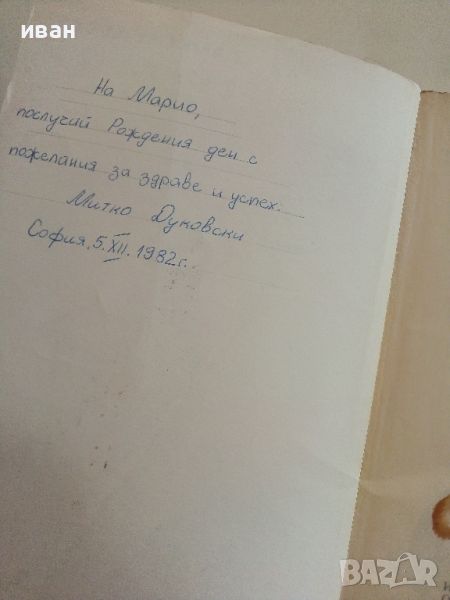 иван
На Марио,
послучай Рождения ден с
пожелания за здраве и успех.
Митко Дуковски
София, 5.XII.1982г.
BAZAR